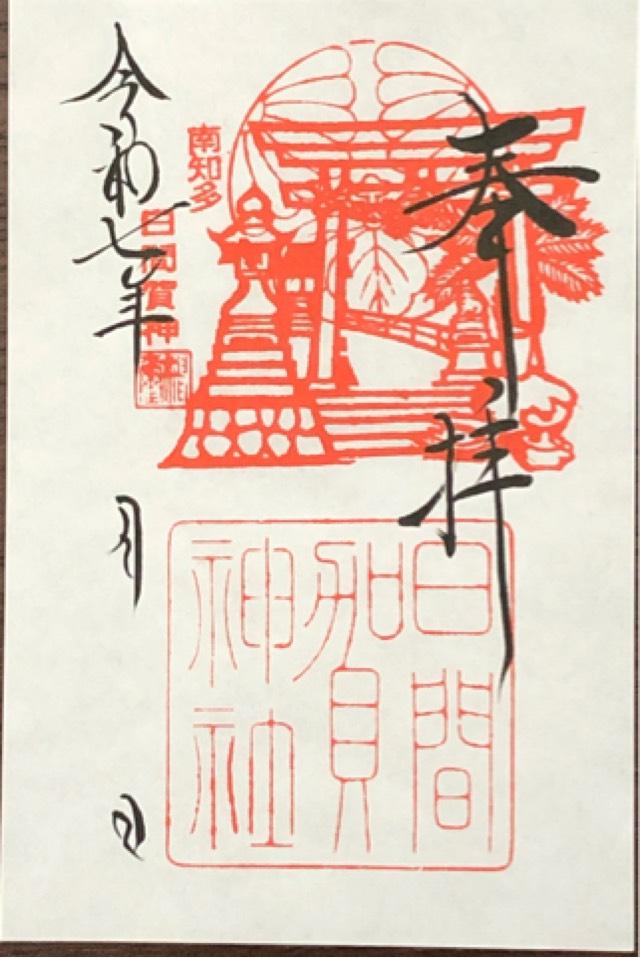 奉拝
南知多
日間賀神社
日間賀神社
令和七年 月 日